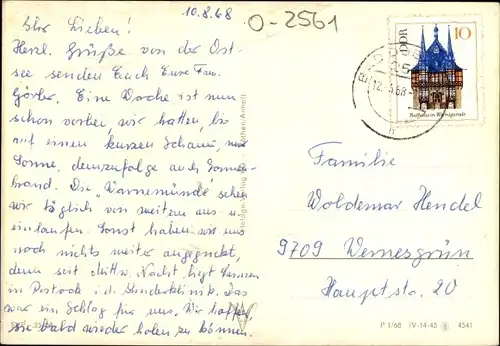 10.8.68
O-2561
Ihr Lieben!
Herzl. Grüße von der Ost-
see senden Euch Eure Fam.
Görler. Eine Woche ist nun
schon vorbei, wir hatten, bis
auf einen kurzen Schauer, nur
Sonne, demzufolge auch Sonnen-
brand. Die "Warnemünde" sehen
wir täglich von weitem aus u.
einlaufen. Sonst haben wir uns
noch nichts weiter angeguckt,
denn seit Mittw. Nacht liegt Carmen
in Rostock i. d. Kinderklinik. Das
war ein Schlag für uns. Wir hoffen,
sie bald wieder holen zu können.
DDR
10
Rathaus in Wernigerode
Familie
Woldemar Hendel
9709 Wernesgrün
Hauptstr. 20
P 1/68 IV-14-45 4541